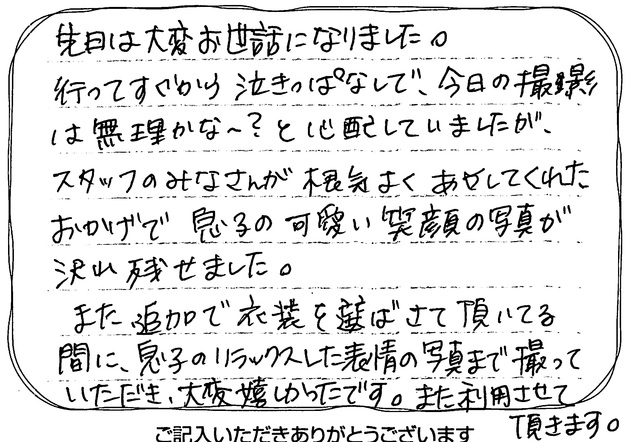 先日は大変お世話になりました。
行ってすぐから泣きっぱなしで、今日の撮影
は無理かな〜?と心配していましたが、
スタッフのみなさんが根気よくあやしてくれた
おかげで息子の可愛い笑顔の写真が
沢山残せました。
また、追加で衣装を選ばさて頂いてる
間に、息子のリラックスした表情の写真まで撮って
いただき、大変嬉しかったです。また利用させて
頂きます。
ご記入いただきありがとうございます